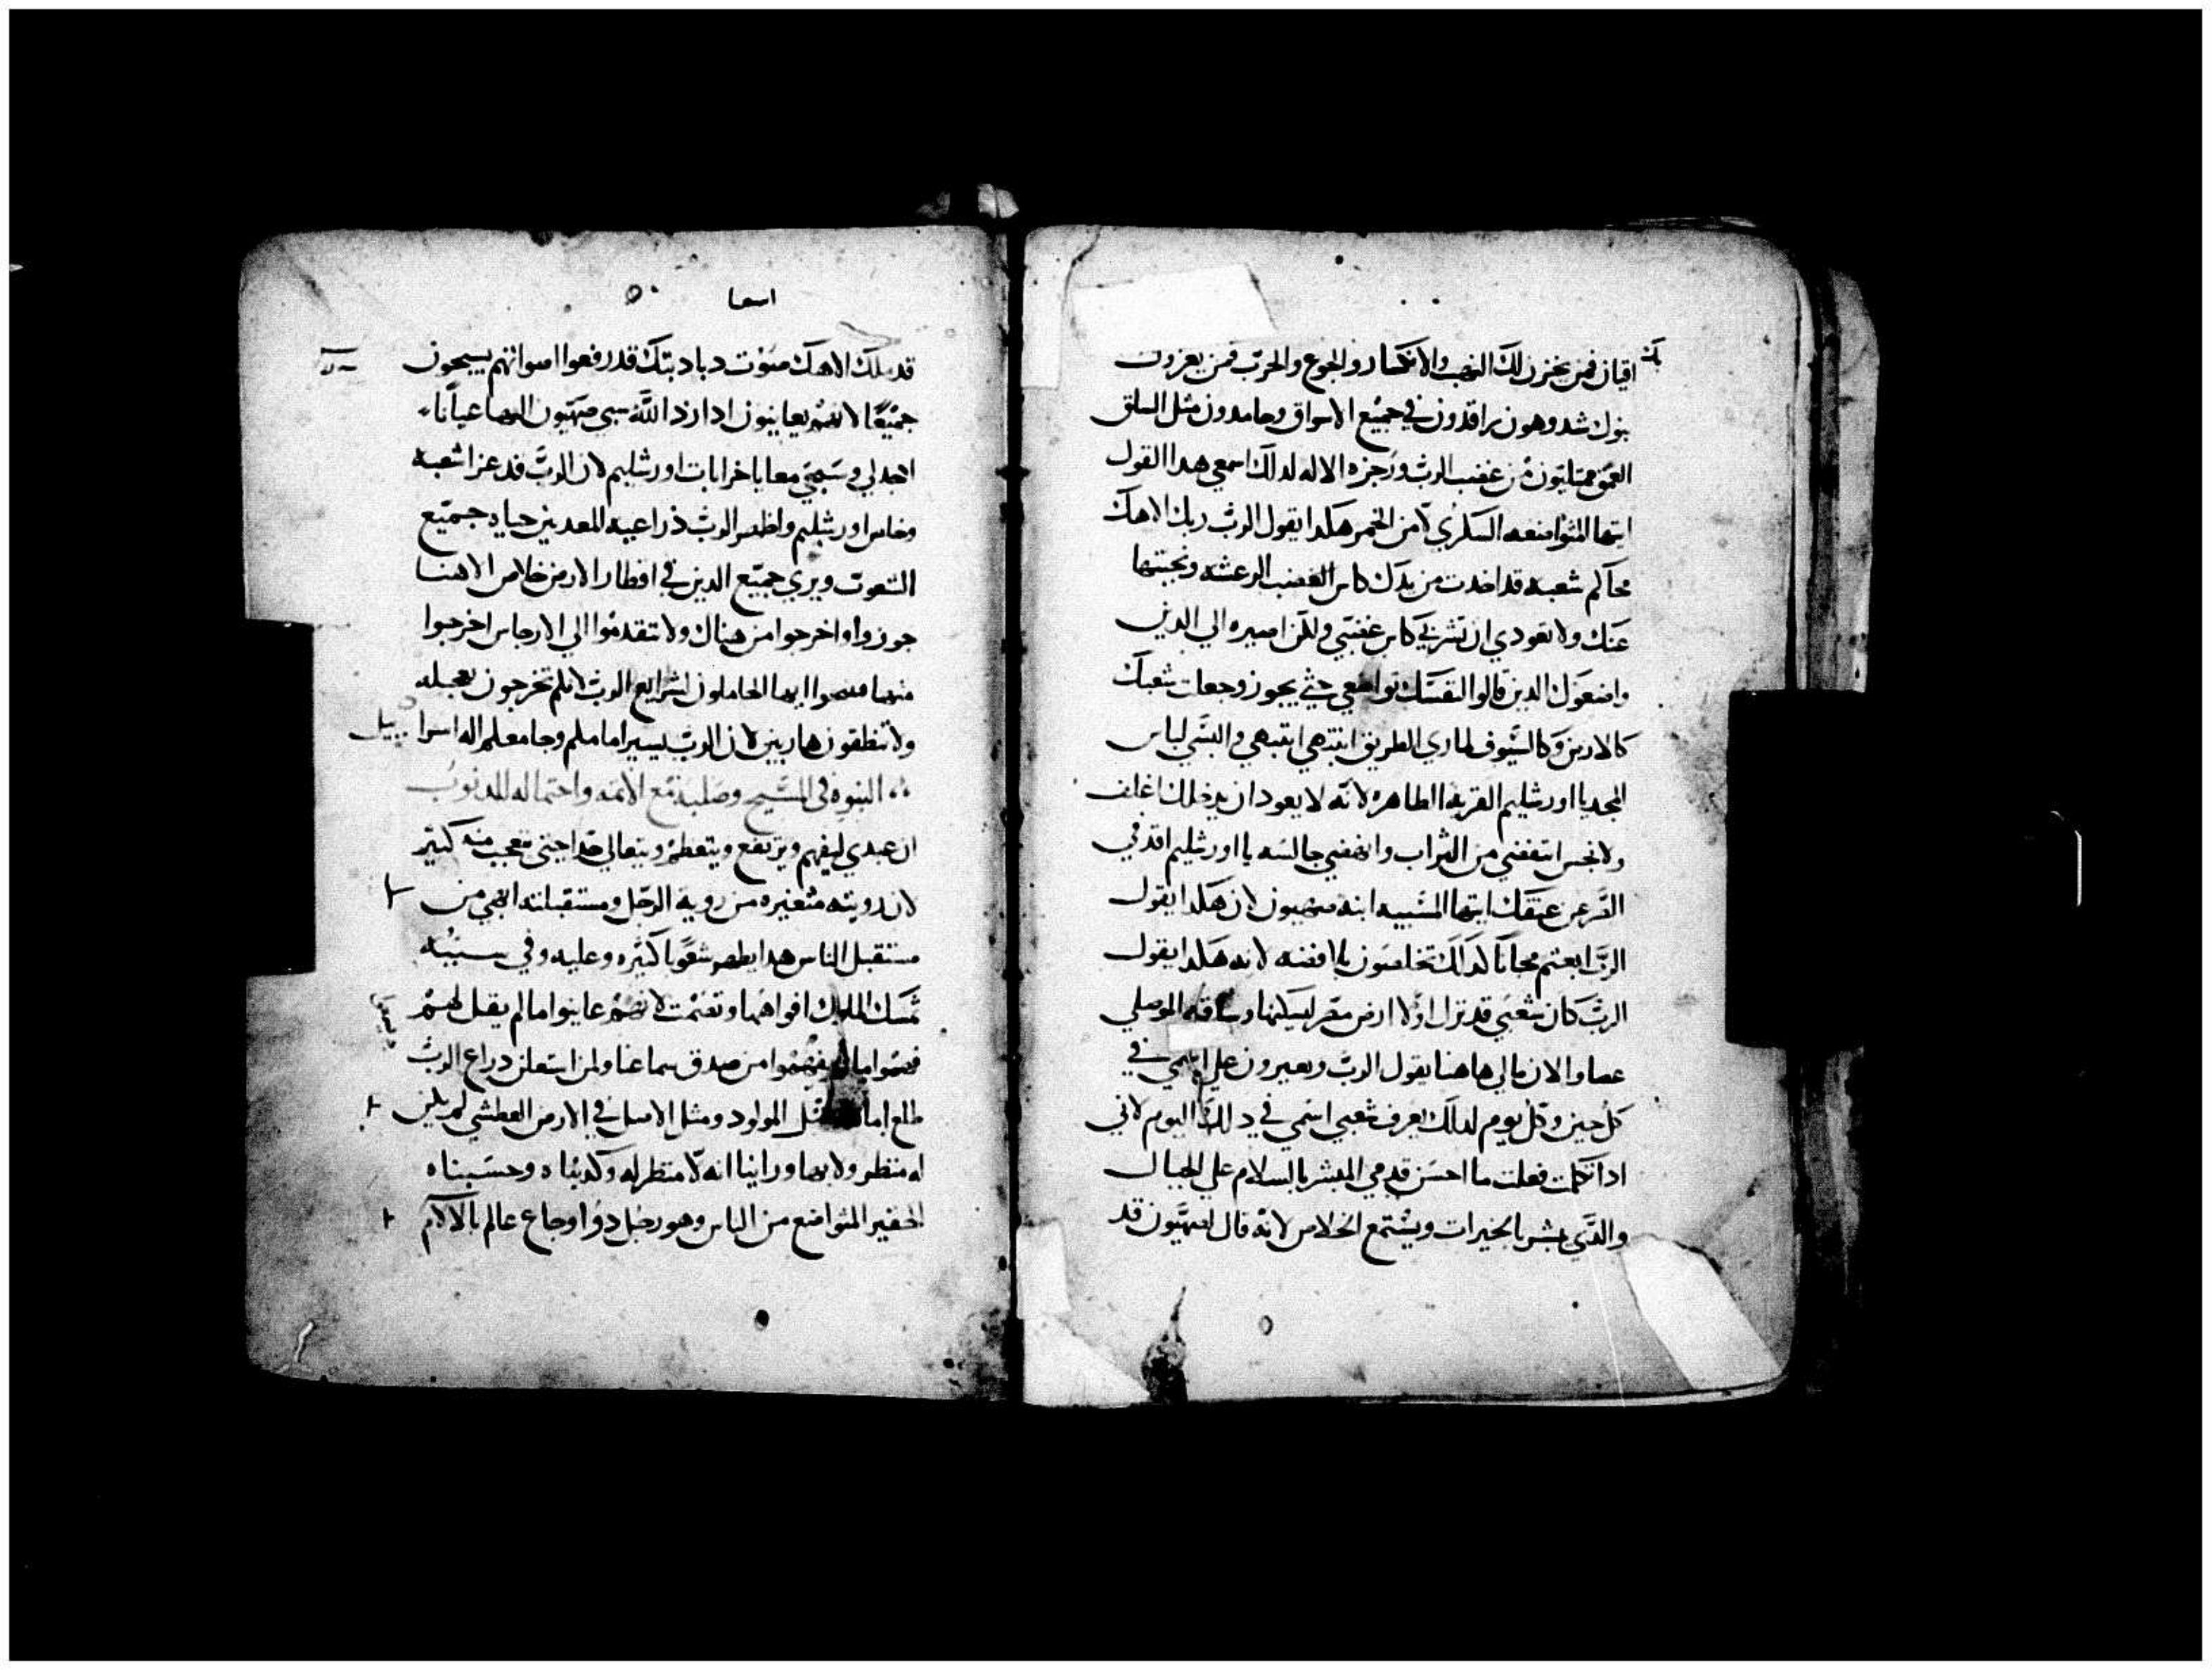 اقيان فمن يحزن لك النهب والانكسار والجوع والحرب فمن يعزيك
بنوك شدوهون راقدون في جميع الاسواق وجامدون مثل السلق
ممتليون من غضب الرب وزجزه الاله لدلك اسمعي هدا القول
ايتها المتواضعه السكري لا من الخمر هكدا يقول الرب ربك الاهك
محاكم شعبه قد اخدت من يدك كاس الغضب الرعشه ونجيتها
عنك ولا تعودي ان تشربي كاس غضبي ولكن اصيره الي الدين
واضعوك الدين قالوا لنفسك تواضعي حتي يجوز وجعلت شعبك
كالارض وكالسيوف لماري الطريق انتبهي انتبهي والبسي لباس
المجد يا اورشليم القريه الطاهره لانه لا يعود ان يدخلك اغلف
ولا نجس انتفضي من التراب وانهضي جالسه يا اورشليم اقدفي
عن عنقك ايتها المسبيه ابنه صهيون لان هكدا يقول
الرب ابعتم مجانا كدلك تخلصون بلا فضه لانه هكدا يقول
الرب كان شعبي قد نزل اولا ارض مصر ليسكنها وساقه الموصلي
عصا والان مالي هاهنا يقول الرب ويعيرون علي اسمي في
كل حين وكل يوم لدلك يعرف شعبي اسمي في دلك اليوم لاني
ادا تكلمت فعلت ما احسن قدمي المبشر بالسلام علي الجبال
والدي يبشر بالخيرات ويشتمع الخلاص لانه قال لصهيون قد
اسعيا
قد ملك الاهك صوت دبادبتك قد رفعوا اصواتهم يسبحون
جميعا لانهم يعاينون ادا رد الله سبي صهيون اليها عيانا
اجدلي وسبحي معا يا خرابات اورشليم لان الرب قد عزا شعبه
وخاس اورشليم واظهر الرب ذراعيه المعدين حياه جميع
الشعوب ويري جميع الدين في اقطار الارض خلاص الاهنا
جوزوا واخرجوا من هناك ولا تتقدموا الي الارجاس اخرجوا
منها ايها الحاملون لشرايع الرب لانكم تخرجون بعجله
ولا تنطقون هاربين لان الرب يسير امامكم وجامعكم اله اسراييل
النبوه في المسيح وصلبه مع الائمه واحتماله للدنوب
ان عبدي ليفهم ويرتفع ويتعظم ويتعالي جدا حتي تعجب منه كثير
لان رويته متغيره من روية الرجل ومستقبلته ابهي من
مستقبل الناس هدا يطهر شعوبا كثيره وعليه وفي سببه
تمسك الملوك افواهها وتغمت لانهم عاينوا ما لم يقل لهم
من صدق سماعنا ولمن استعلن دراع الرب
طلع امامه مثل المولود ومثل الاصل في الارض العطشي لم يكن
له منظر ولا بها وراينا انه لا منظر له وكدبناه وحسبناه
الحقير المتواضع من الناس وهو رجل دو اوجاع عالم بالالام